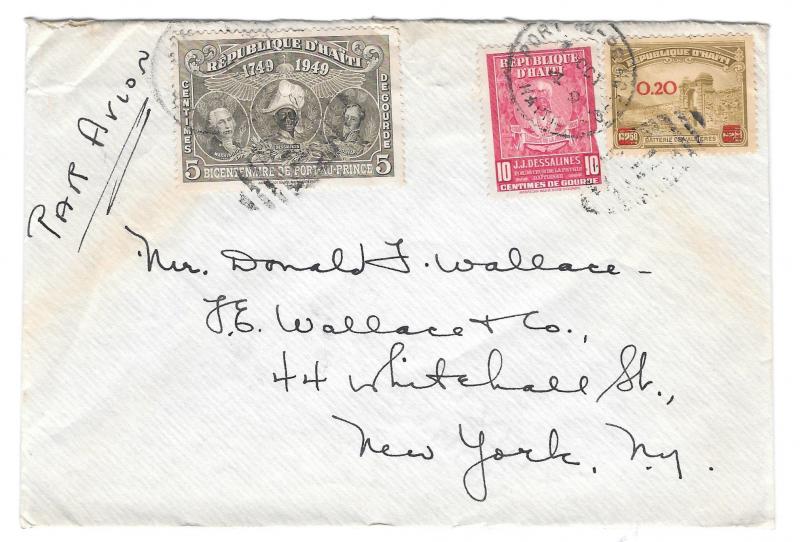 PAR AVION
RÉPUBLIQUE D'HAÏTI
1749 1949
CENTIMES
DE GOURDE
DESSALINES
5 BICENTENAIRE DE PORT-AU-PRINCE 5
PORT-AU-
RÉPUBLIQUE
D'HAÏTI
J.J. DESSALINES
10 10
CENTIMES DE GOURDE
RÉPUBLIQUE D'HAÏTI
0.20
BATTERIE
Mr. Donald F. Wallace -
J.E. Wallace & Co.,
44 Whitehall St.,
New York, N.Y.